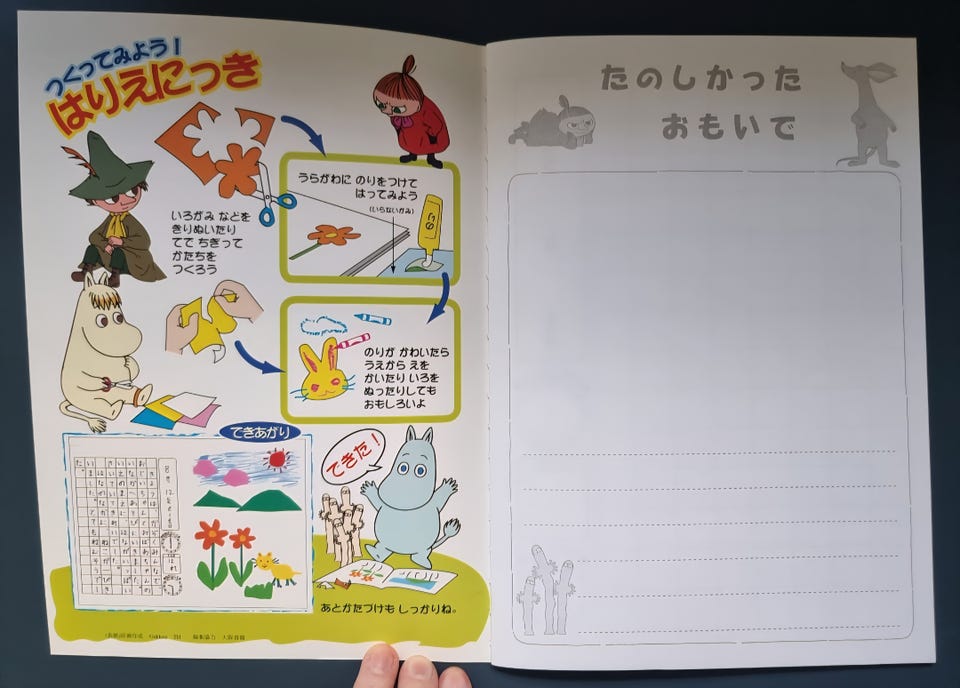 つくってみよう！
はりえにっき
いろがみ などを
きりぬいたり
てで ちぎって
かたちを
つくろう
うらがわに のりをつけて
はってみよう
(いらないかみ)
のり
のりが かわいたら
うえから えを
かいたり いろを
ぬったりしても
おもしろいよ
できあがり
できた！
あとかたづけも しっかりね。
たのしかった
おもいで